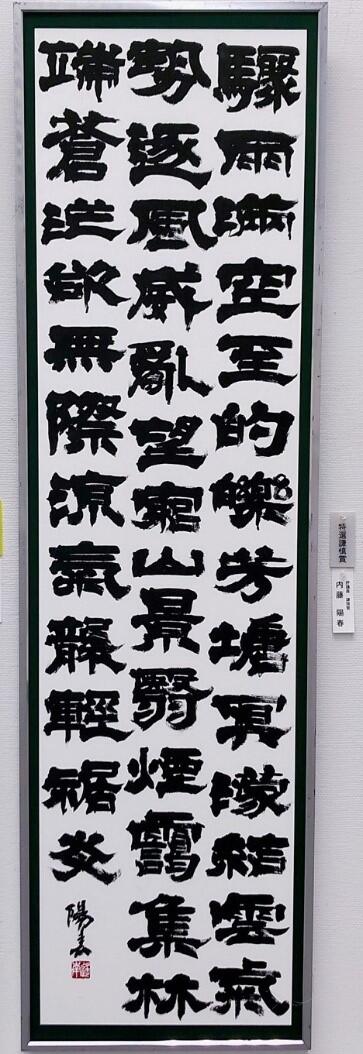 驟雨滿空至的皪芳塘冥濛結雲氣
勢逐風威亂望窮山景翳煙靄集林
端蒼茫欲無際涼氣襲輕裾炎
陽春
特選謙慎賞
内藤 陽春